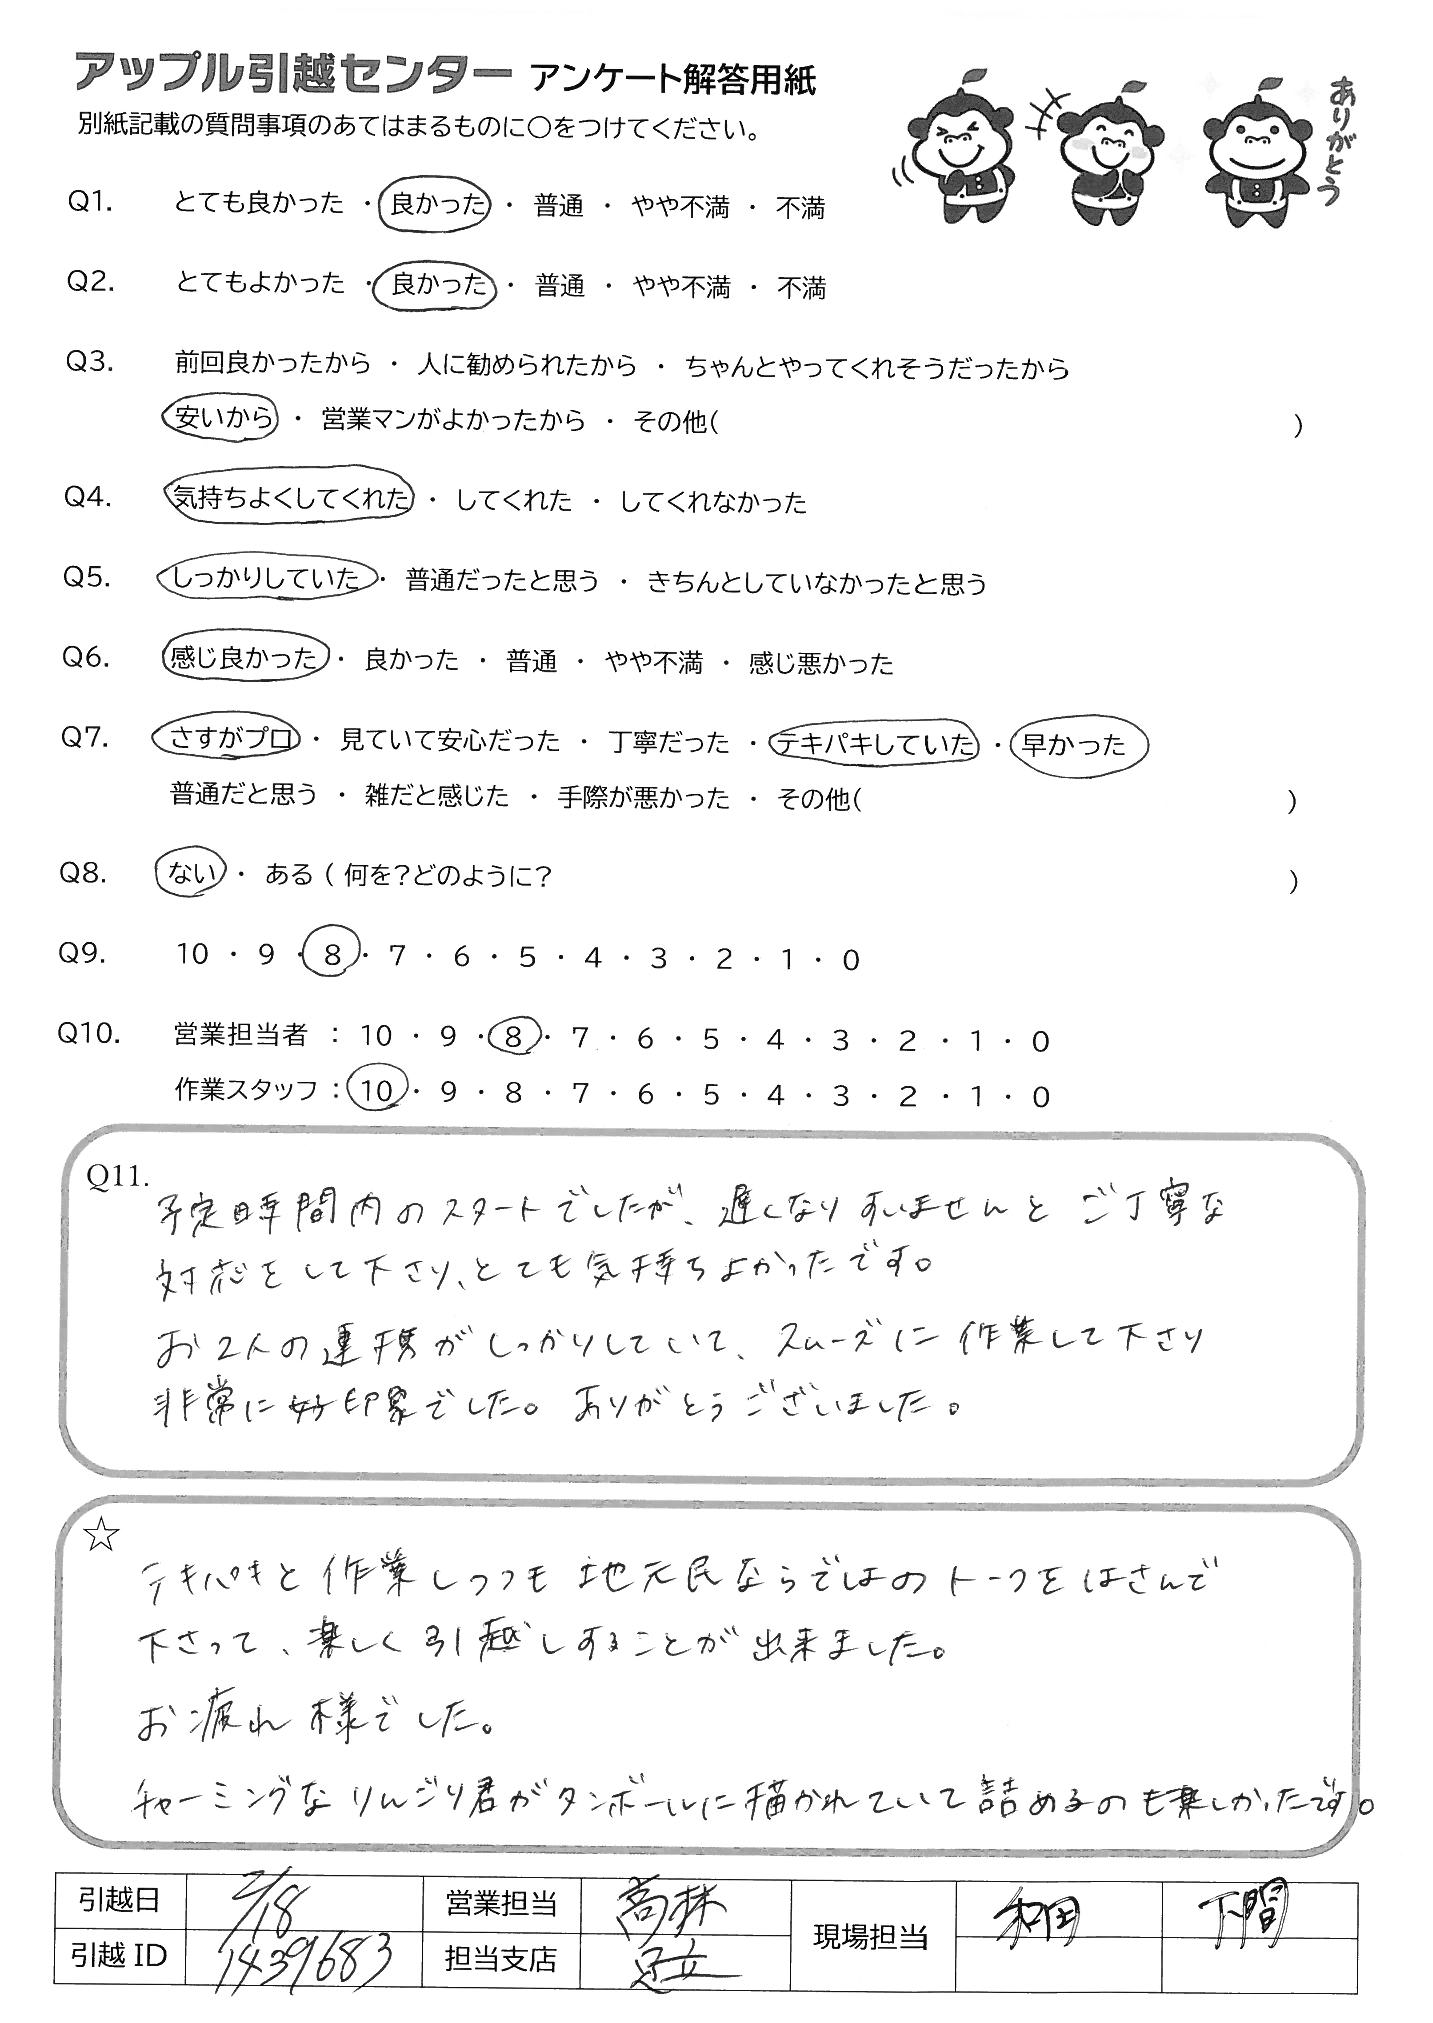 アップル引越センター アンケート解答用紙
別紙記載の質問事項のあてはまるものに〇をつけてください。
ありがとう
Q1. とても良かった ・ 良かった ・ 普通 ・ やや不満 ・ 不満
Q2. とてもよかった ・ 良かった ・ 普通 ・ やや不満 ・ 不満
Q3. 前回良かったから ・ 人に勧められたから ・ ちゃんとやってくれそうだったから
安いから ・ 営業マンがよかったから ・ その他( )
Q4. 気持ちよくしてくれた ・ してくれた ・ してくれなかった
Q5. しっかりしていた ・ 普通だったと思う ・ きちんとしていなかったと思う
Q6. 感じ良かった ・ 良かった ・ 普通 ・ やや不満 ・ 感じ悪かった
Q7. さすがプロ ・ 見ていて安心だった ・ 丁寧だった ・ テキパキしていた ・ 早かった
普通だと思う ・ 雑だと感じた ・ 手際が悪かった ・ その他( )
Q8. ない ・ ある ( 何を?どのように? )
Q9. 10 ・ 9 ・ 8 ・ 7 ・ 6 ・ 5 ・ 4 ・ 3 ・ 2 ・ 1 ・ 0
Q10. 営業担当者 : 10 ・ 9 ・ 8 ・ 7 ・ 6 ・ 5 ・ 4 ・ 3 ・ 2 ・ 1 ・ 0
作業スタッフ : 10 ・ 9 ・ 8 ・ 7 ・ 6 ・ 5 ・ 4 ・ 3 ・ 2 ・ 1 ・ 0
Q11.
予定時間内のスタートでしたが、遅くなりすいませんとご丁寧な
対応をして下さり、とても気持ちよかったです。
お2人の連携がしっかりしていて、スムーズに作業して下さり
非常に好印象でした。ありがとうございました。
☆
テキパキと作業しつつも地元民ならではのトークをはさんで
下さって、楽しく引越しすることが出来ました。
お疲れ様でした。
チャーミングなりんごり君がダンボールに描かれていて詰めるのも楽しかったです。
引越日 2/18 営業担当 高林 現場担当 和田 下間
引越ID 1439683 担当支店 足立